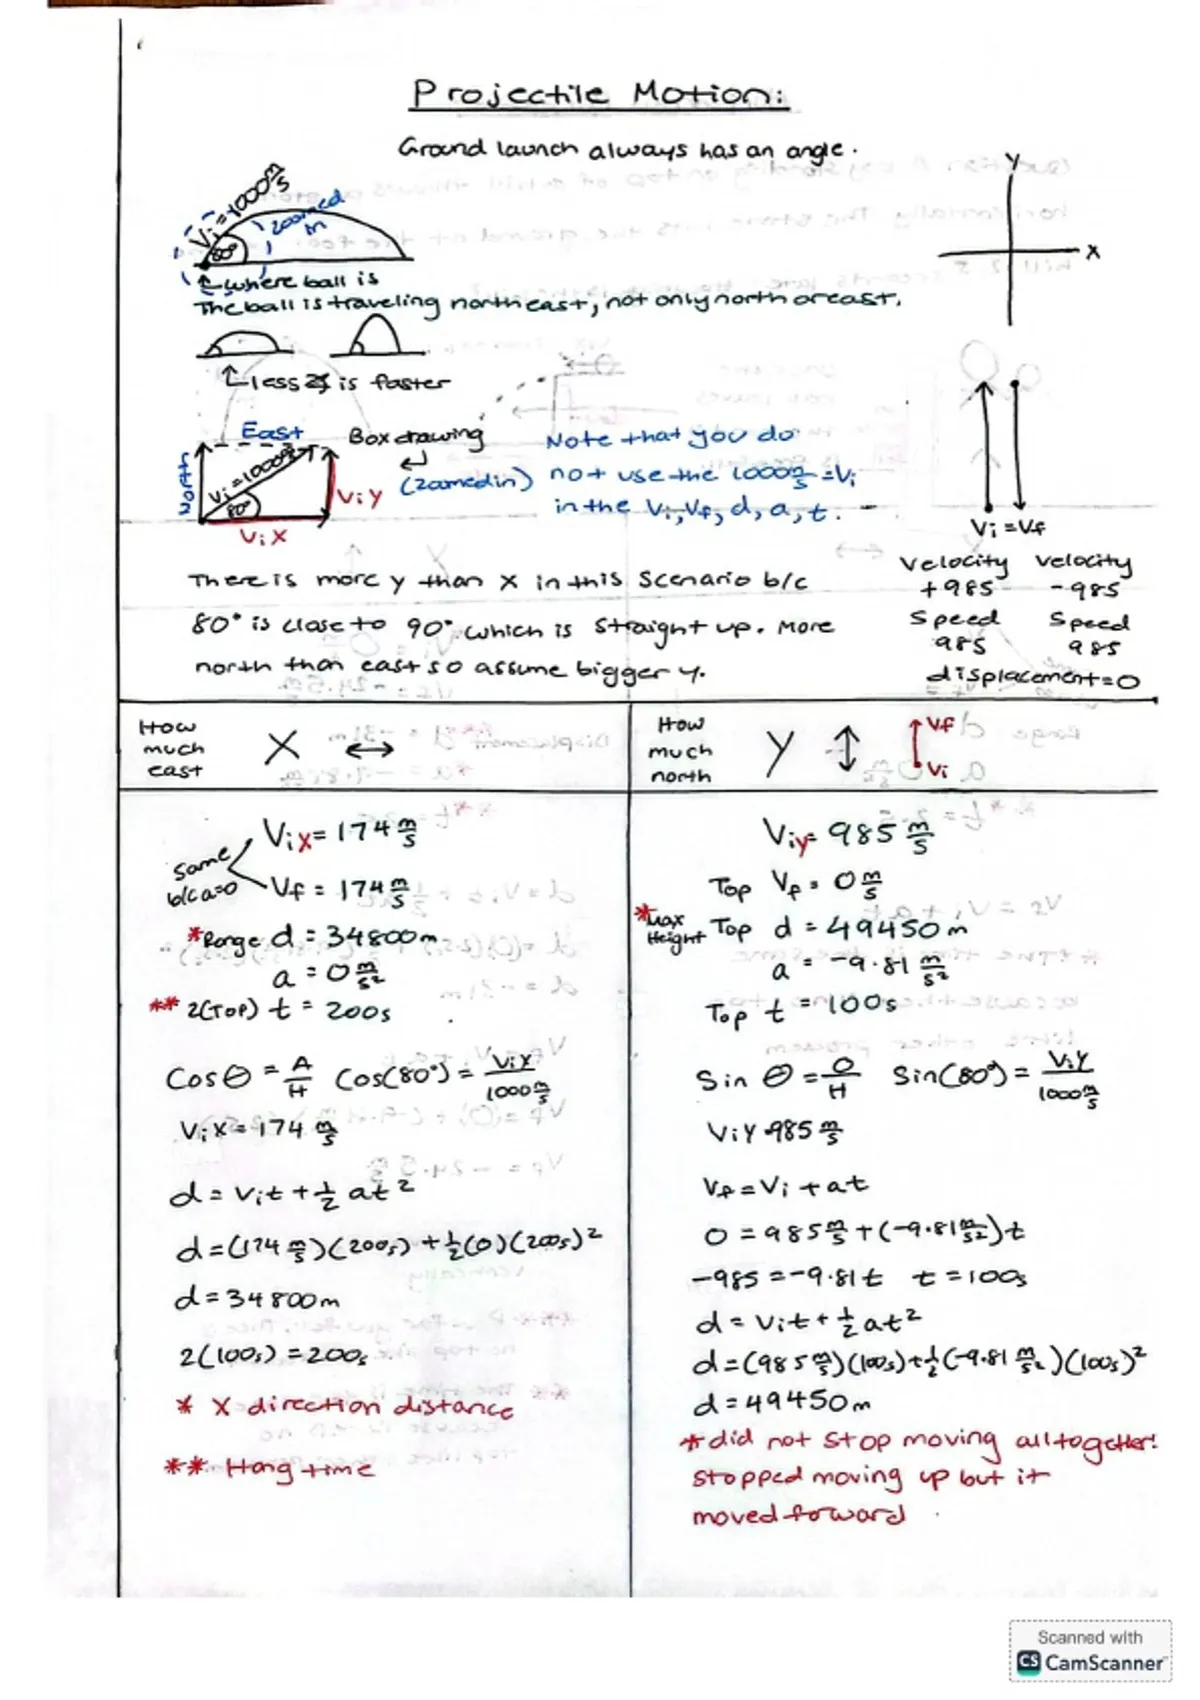 Projectile Motion:
Ground launch always has an angle.
Vi = 1000 m/s
zoomed in
80°
where ball is
The ball is traveling northeast, not only north or east.
Y
X
less ∡ is faster
East
North
Vi = 1000 m/s
80°
ViY
ViX
Box drawing
(zoomed in)
Note that you do
not use the 1000 m/s = Vi
in the Vi, Vf, d, a, t.
Vi = Vf
Velocity Velocity
+985 -985
Speed Speed
985 985
displacement = 0
There is more y than x in this scenario b/c
80° is close to 90° which is straight up. More
north than east so assume bigger y.
How much east
X ↔
How much north
Y ↕
Vf
Vi
Vix = 174 m/s
same b/c a=0
Vf = 174 m/s
*Range d = 34800m
a = 0 m/s²
** 2(Top) t = 200s
Cosθ = A/H Cos(80°) = ViX/1000 m/s
ViX = 174 m/s
d = Vit + ½ at²
d = (174 m/s)(200s) + ½(0)(200s)²
d = 34800m
2(100s) = 200s
* X direction distance
** Hang time
Viy = 985 m/s
Top Vf = 0 m/s
*Max Height Top d = 49450m
a = -9.81 m/s²
Top t = 100s
Sin θ = O/H Sin(80°) = ViY/1000 m/s
ViY = 985 m/s
Vf = Vi + at
0 = 985 m/s + (-9.81 m/s²)t
-985 = -9.81t t = 100s
d = Vit + ½ at²
d = (985 m/s)(100s) + ½(-9.81 m/s²)(100s)²
d = 49450m
* did not stop moving alltogether!
stopped moving up but it
moved forward
Scanned with
CS CamScanner